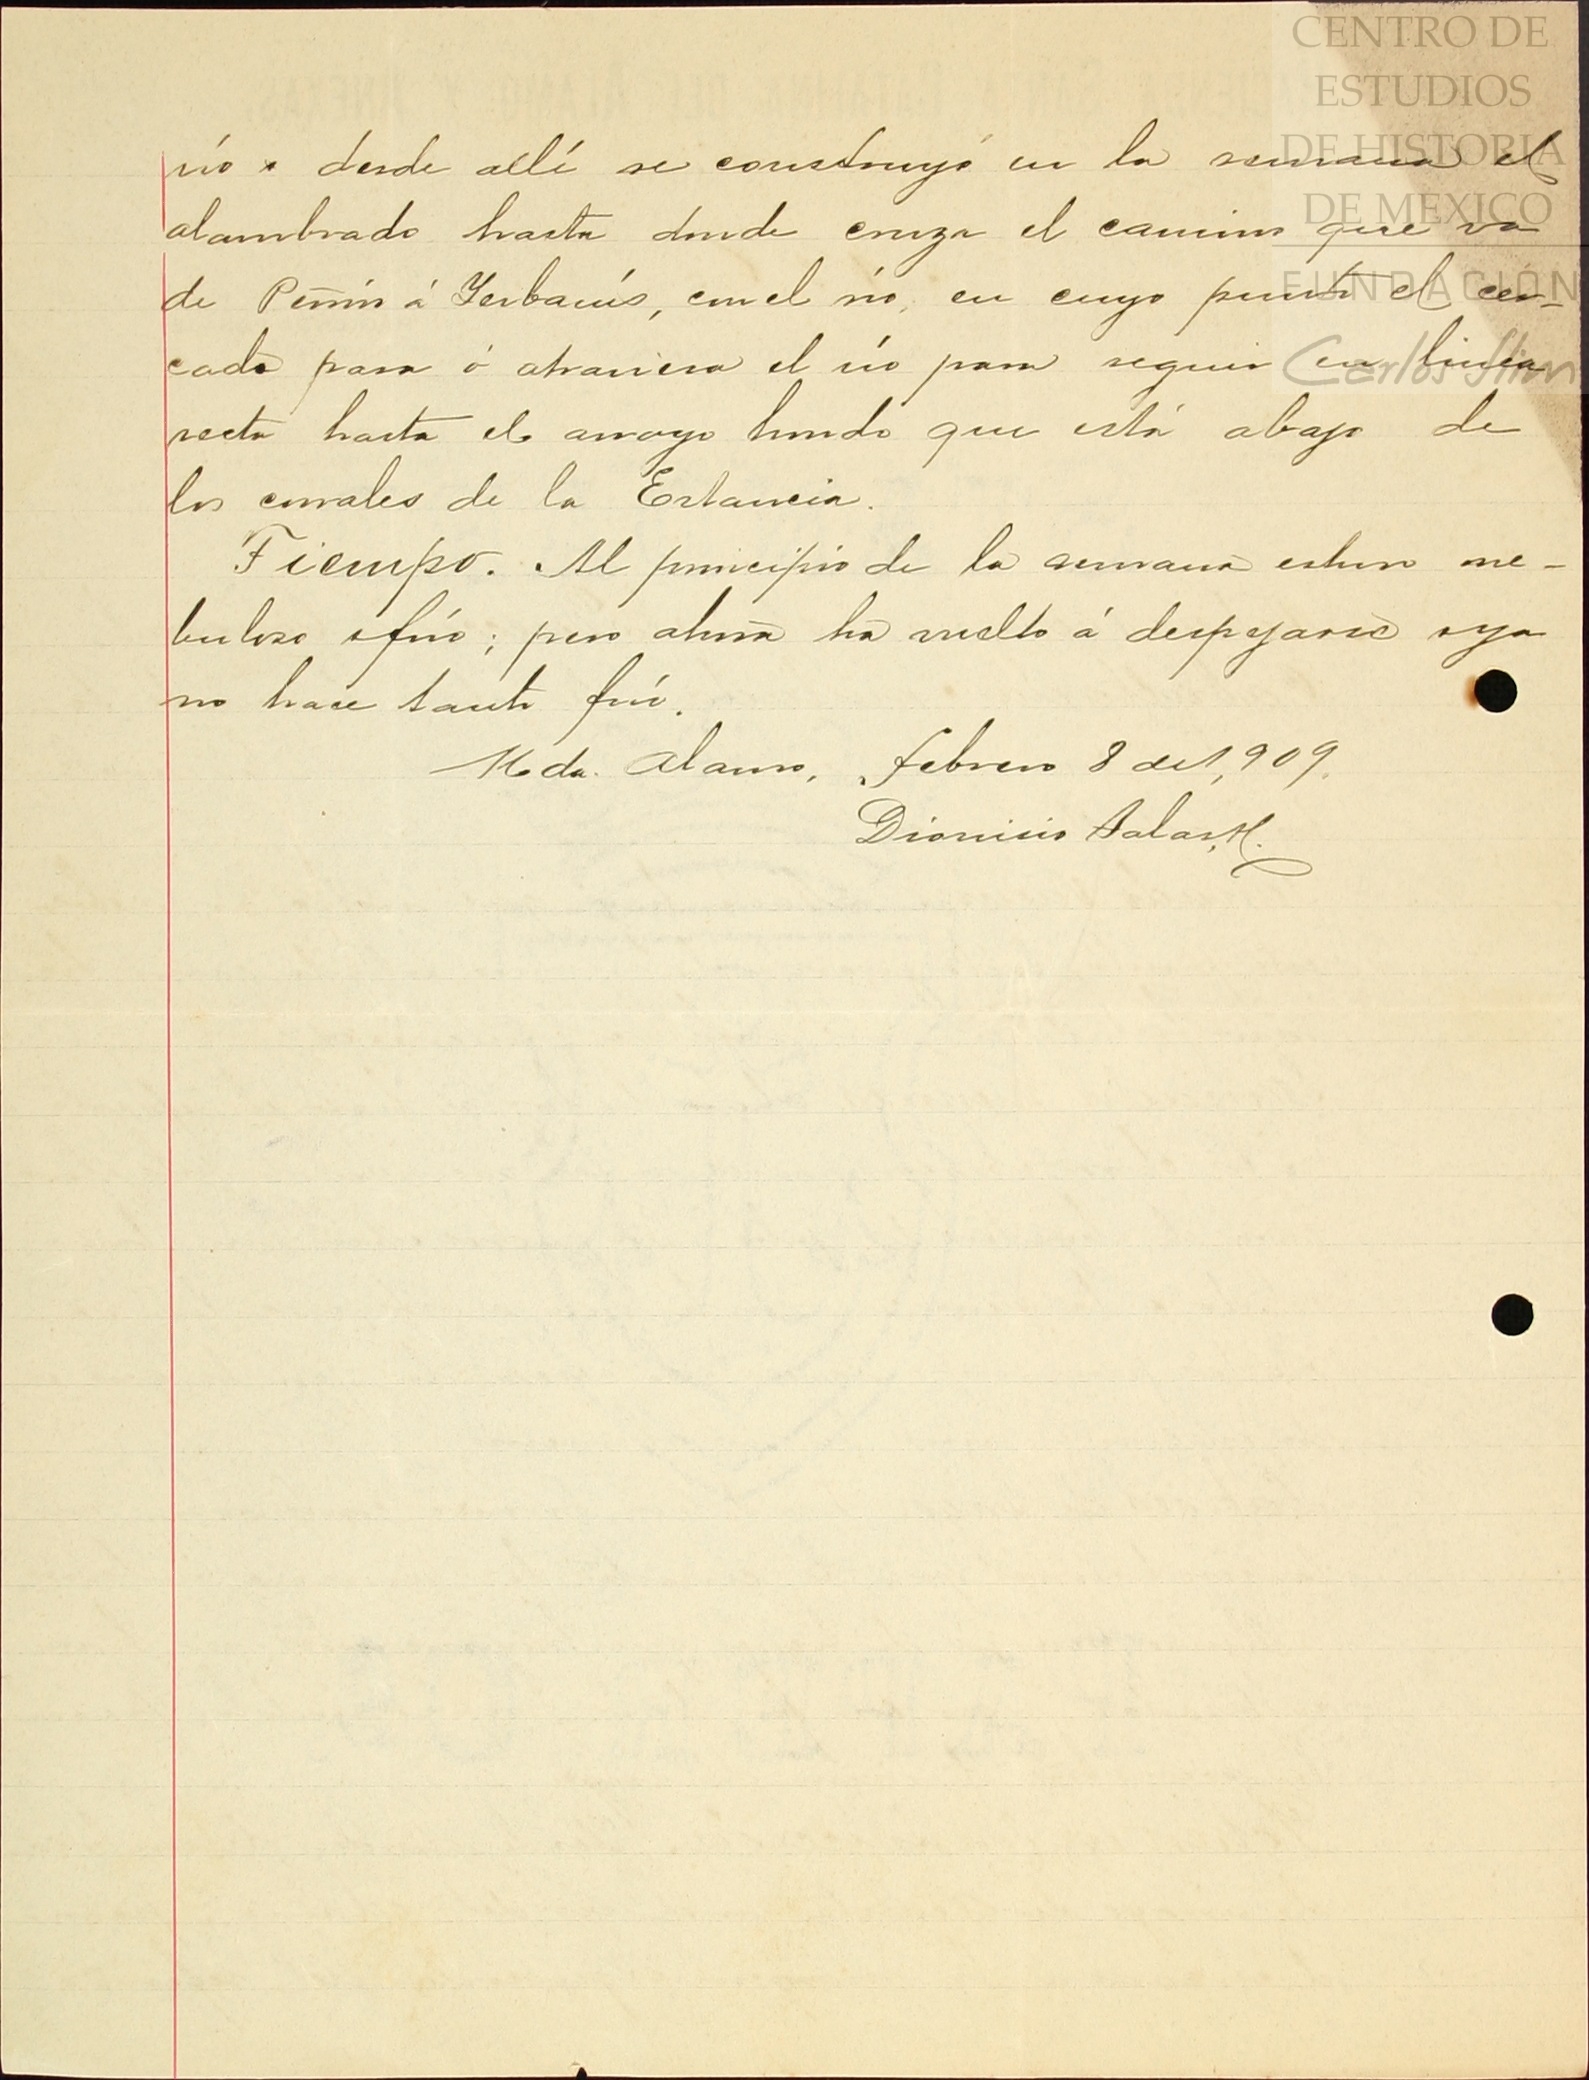 CENTRO DE
ESTUDIOS
DE HISTORIA
DE MEXICO
FUNDACIÓN
Carlos Slim
río y desde allí se construyó en la semana el
alambrado hasta donde cruza el camino que va
de Peñón á Yerbanís, con el río, en cuyo punto el cer-
cado pasa ó atraviesa el río para seguir en linea
recta hasta el arroyo hondo que está abajo de
los corrales de la Estancia.
Tiempo. Al principio de la semana estuvo ne-
buloso y frío; pero ahora ha vuelto á despejarse y ya
no hace tanto frío.
Hda. Alamo, febrero 8 de 1,909.
Dionisio Salas, H.